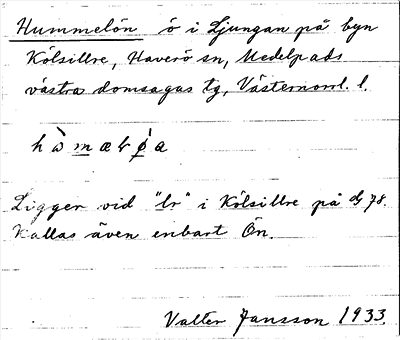 Hummelön ö i Ljungan på byn
Kölsillre, Haverö sn, Medelpads
västra domsagas tg, Västernorrl. l.
Ligger vid "lr" i Kölsillre på 78.
Kallas även enbart Ön.
Valter Jansson 1933.